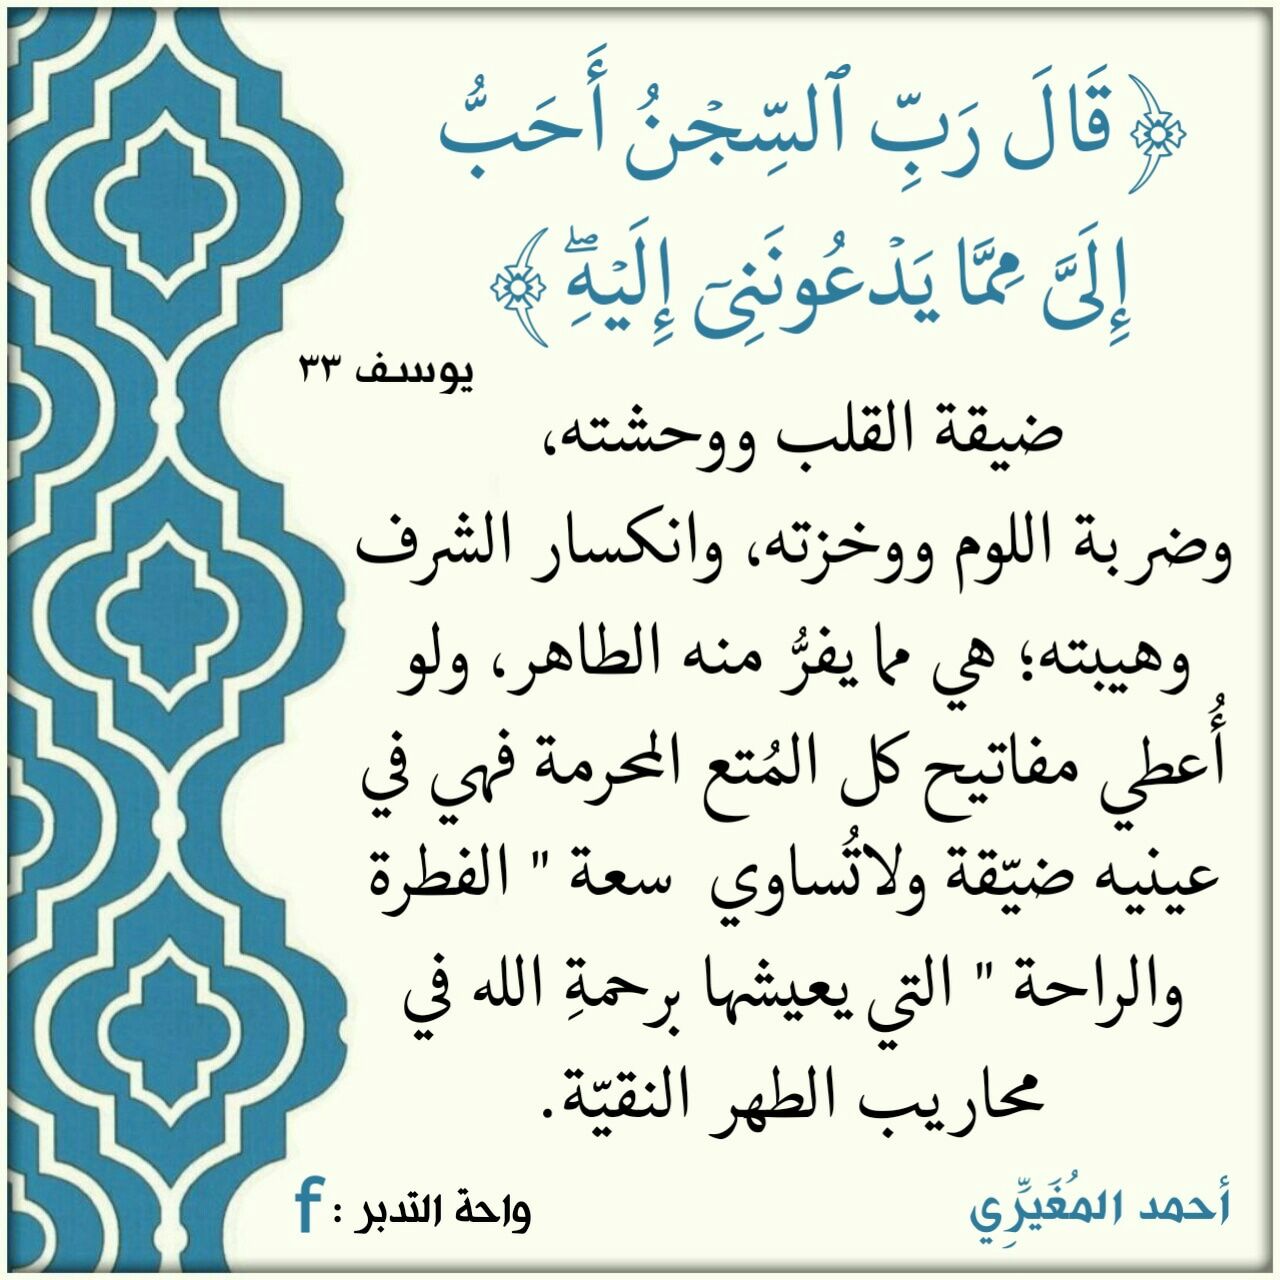 ﴿ قَالَ رَبِّ ٱلسِّجْنُ أَحَبُّ
إِلَىَّ مِمَّا يَدْعُونَنِىٓ إِلَيْهِۖ ﴾
يوسف ٣٣
ضيقة القلب ووحشته،
وضربة اللوم ووخزته، وانكسار الشرف
وهيبته؛ هي مما يفرُّ منه الطاهر، ولو
أُعطي مفاتيح كل المُتع المحرمة فهي في
عينيه ضيّقة ولاتُساوي سعة " الفطرة
والراحة " التي يعيشها برحمةِ الله في
محاريب الطهر النقيّة.
أحمد المُغَيِّرِي
واحة التدبر : f